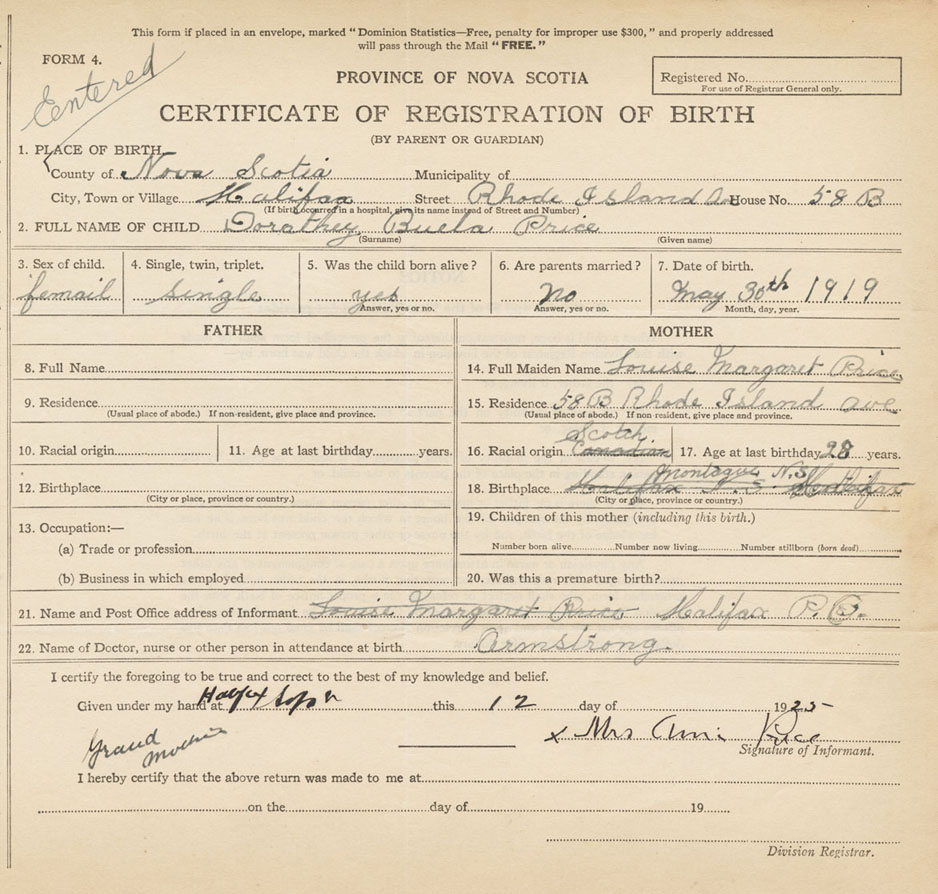 This form if placed in an envelope, marked "Dominion Statistics—Free, penalty for improper use $300," and properly addressed
will pass through the Mail "FREE."
FORM 4.
Entered
PROVINCE OF NOVA SCOTIA
Registered No.
For use of Registrar General only.
CERTIFICATE OF REGISTRATION OF BIRTH
(BY PARENT OR GUARDIAN)
1. PLACE OF BIRTH
County of Nova Scotia Municipality of
City, Town or Village Halifax Street Rhode Island Av House No. 58 B
(If birth occurred in a hospital, give its name instead of Street and Number)
2. FULL NAME OF CHILD Dorathey Buela Price
(Surname) (Given name)
3. Sex of child. 4. Single, twin, triplet. 5. Was the child born alive? 6. Are parents married? 7. Date of birth.
femail single yes no May 30th 1919
Answer, yes or no. Answer, yes or no. Month, day, year.
FATHER MOTHER
8. Full Name 14. Full Maiden Name Louise Margaret Price
9. Residence 15. Residence 58 B Rhode Island ave
(Usual place of abode.) If non-resident, give place and province. (Usual place of abode.) If non-resident, give place and province.
Scotch
10. Racial origin 11. Age at last birthday years. 16. Racial origin Canadian 17. Age at last birthday 28 years.
Montague N.S
12. Birthplace 18. Birthplace Halifax N.S
(City or place, province or country.) (City or place, province or country.)
13. Occupation:— 19. Children of this mother (including this birth.)
(a) Trade or profession Number born alive Number now living Number stillborn (born dead)
(b) Business in which employed 20. Was this a premature birth?
21. Name and Post Office address of Informant Louise Margaret Price Halifax P.O.
22. Name of Doctor, nurse or other person in attendance at birth Armstrong.
I certify the foregoing to be true and correct to the best of my knowledge and belief.
Given under my hand at this 12 day of 1925
x Mrs Price
Grand Signature of Informant.
Mother
I hereby certify that the above return was made to me at
on the day of 19
Division Registrar.